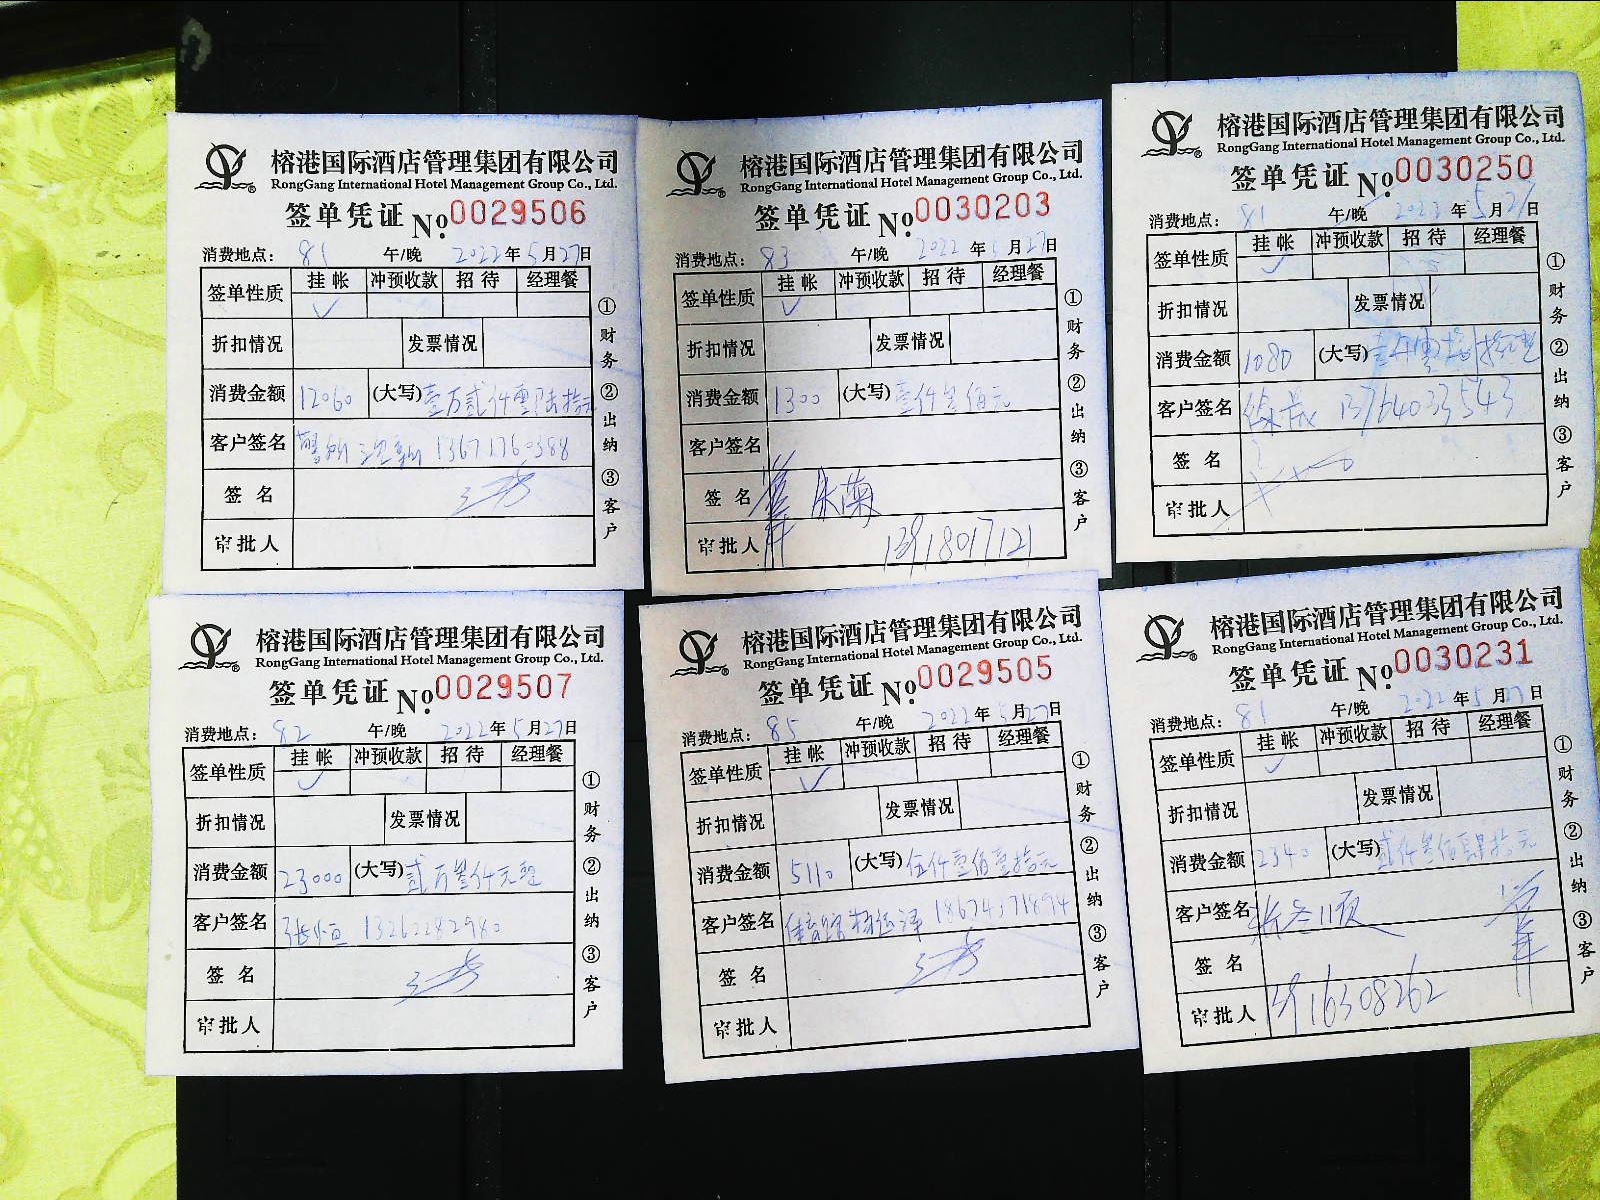 榕港国际酒店管理集团有限公司
RongGang International Hotel Management Group Co., Ltd.
签单凭证 No.0029506
消费地点: 81 午/晚 2022年5月27日
签单性质 挂帐 冲预收款 招待 经理餐
✓
折扣情况 发票情况
消费金额 12060 (大写) 壹万贰仟零陆拾元
客户签名 13671760388
签名
审批人
①财务 ②出纳 ③客户
榕港国际酒店管理集团有限公司
RongGang International Hotel Management Group Co., Ltd.
签单凭证 No.0030203
消费地点: 83 午/晚 2022年5月27日
签单性质 挂帐 冲预收款 招待 经理餐
✓
折扣情况 发票情况
消费金额 1300 (大写) 壹仟叁佰元
客户签名
签名
审批人 13918017121
①财务 ②出纳 ③客户
榕港国际酒店管理集团有限公司
RongGang International Hotel Management Group Co., Ltd.
签单凭证 No.0030250
消费地点: 81 午/晚 2022年5月27日
签单性质 挂帐 冲预收款 招待 经理餐
✓
折扣情况 发票情况
消费金额 1080 (大写)
客户签名 13764033543
签名
审批人
①财务 ②出纳 ③客户
榕港国际酒店管理集团有限公司
RongGang International Hotel Management Group Co., Ltd.
签单凭证 No.0029507
消费地点: 82 午/晚 2022年5月27日
签单性质 挂帐 冲预收款 招待 经理餐
✓
折扣情况 发票情况
消费金额 23000 (大写) 贰万叁仟元整
客户签名 张恒 13262282980
签名
审批人
①财务 ②出纳 ③客户
榕港国际酒店管理集团有限公司
RongGang International Hotel Management Group Co., Ltd.
签单凭证 No.0029505
消费地点: 85 午/晚 2022年5月27日
签单性质 挂帐 冲预收款 招待 经理餐
✓
折扣情况 发票情况
消费金额 5110 (大写) 伍仟壹佰壹拾元
客户签名 18674371894
签名
审批人
①财务 ②出纳 ③客户
榕港国际酒店管理集团有限公司
RongGang International Hotel Management Group Co., Ltd.
签单凭证 No.0030231
消费地点: 81 午/晚 2022年5月27日
签单性质 挂帐 冲预收款 招待 经理餐
✓
折扣情况 发票情况
消费金额 2340 (大写) 贰仟叁佰肆拾元
客户签名
签名
审批人
①财务 ②出纳 ③客户